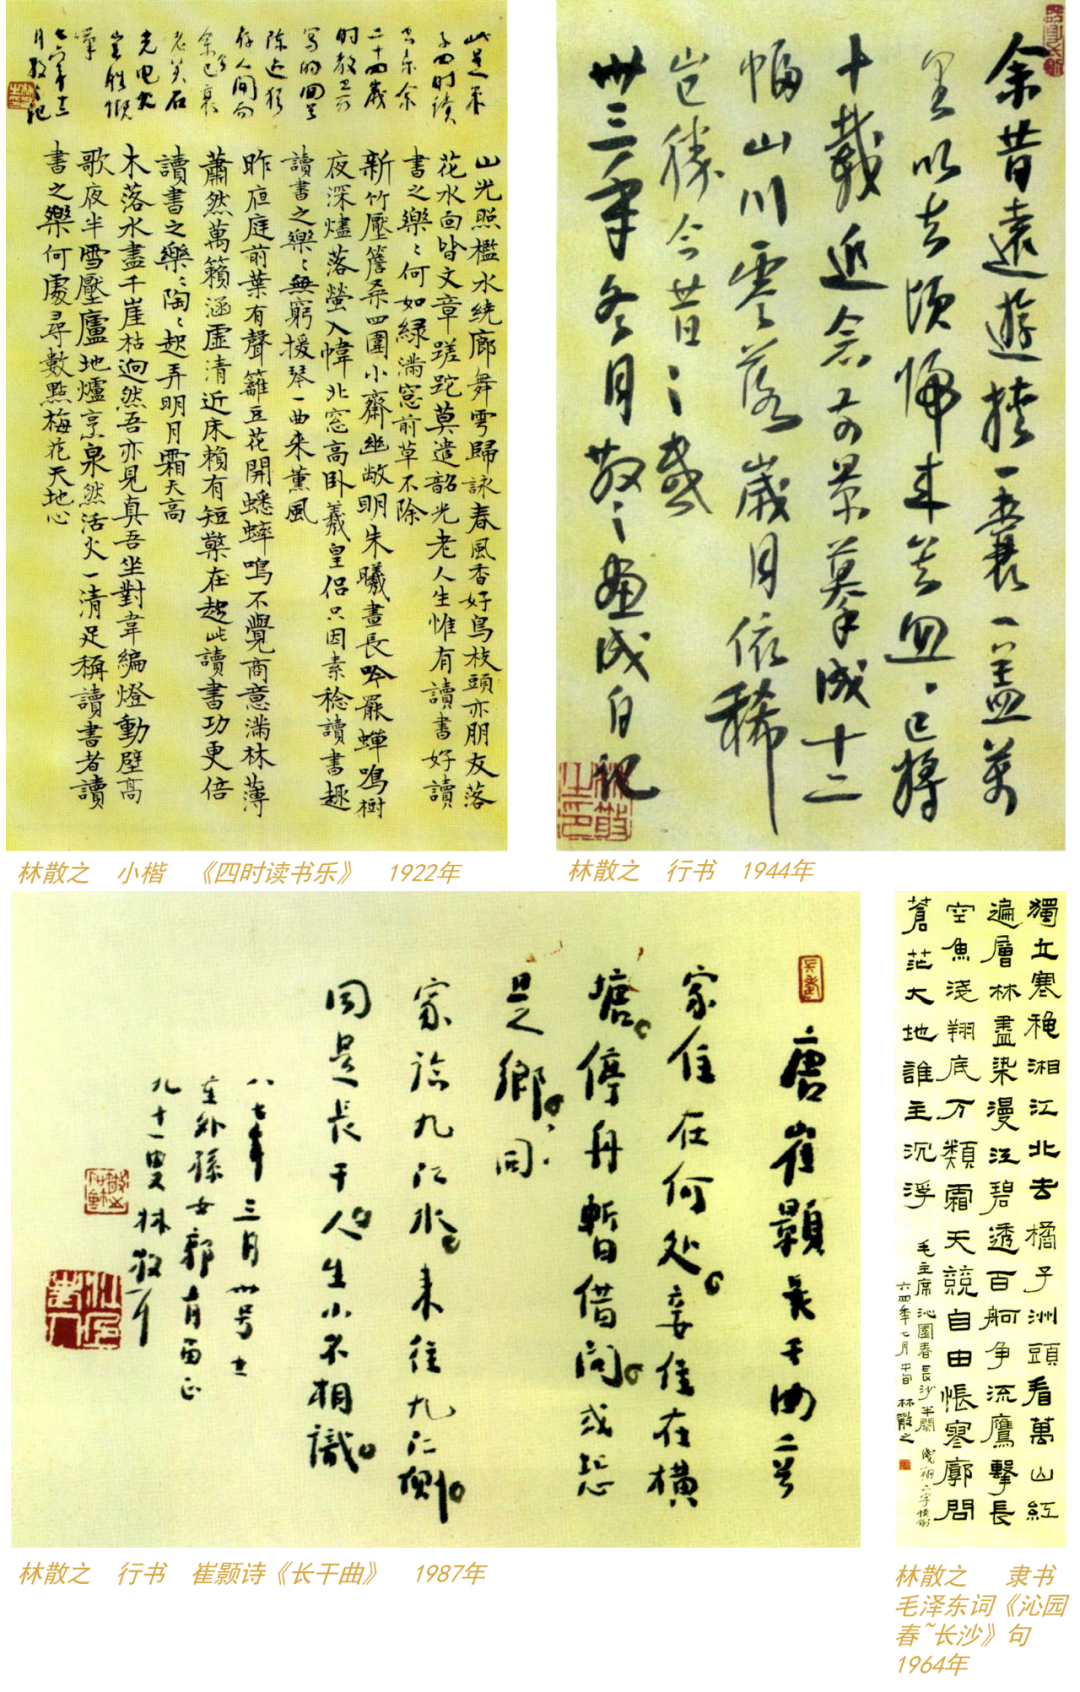 山光照檻水繞廊舞雩歸詠春風香好鳥枝頭亦朋友落
花水面皆文章蹉跎莫遣韶光老人生惟有讀書好讀
書之樂〻何如綠滿窓前草不除
新竹壓簷桑四圍小齋幽敞明朱曦晝長吟罷蟬鳴樹
夜深燼落螢入幃北窓高卧羲皇侣只因素稔讀書趣
讀書之樂〻無窮援琴一曲来薫風
昨夜庭前葉有聲籬豆花開蟋蟀鳴不覺商意滿林薄
蕭然萬籟涵虛清近床賴有短檠在起此讀書功更倍
讀書之樂〻陶〻起弄明月霜天高
木落水盡千崖枯迥然吾亦見真吾坐對韋編燈動壁高
歌夜半雪壓廬地爐烹泉然活火一清足稱讀書者讀
書之樂何處尋數點梅花天地心
此是余
子四时讀
書樂余
二十四歲
时教卫前
写的回首
陈迹猶
存人間而
余已衰
老矣石
火電光
豈勝慨
嘆
月散之記
林散之 小楷 《四时读书乐》 1922年
余昔遠遊挾一囊一蓋萬
里以去頃歸来芒皿〻已將
十載近念前景摹成十二
幅山川零落歲月依稀
豈勝今昔之感
卅三年冬月散之画成自记
林散之 行书 1944年
唐崔顥長干曲二首
家住在何处妾住在横
塘停舟暫借问或恐
是鄉同
家临九江水来往九江侧
同是長干人生小不相識
八七年三月卅号書
左外孫女郭有西正
九十一叟林散耳
林散之 行书 崔颢诗《长干曲》 1987年
獨立寒穐湘江北去橘子洲頭看萬山紅
遍層林盡染漫江碧透百舸争流鷹擊長
空魚淺翔底万類霜天競自由悵寥廓問
蒼茫大地誰主沉浮
毛主席沁園春長沙半闋 淺翔二字倛倒
六四年七月中旬 林散之
林散之 隶书
毛泽东词《沁园
春~长沙》句
1964年